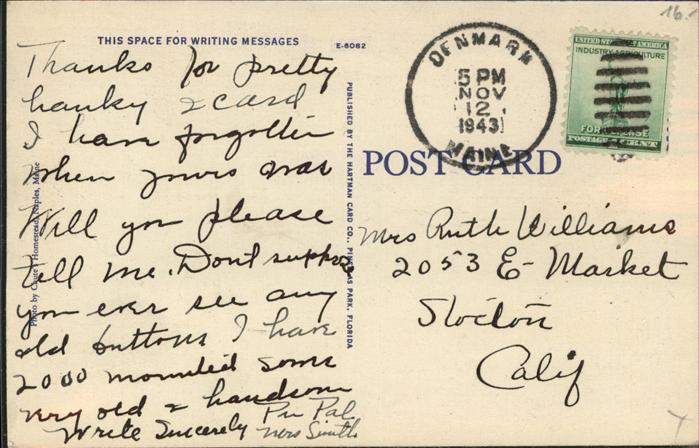 16.-
THIS SPACE FOR WRITING MESSAGES
E-6082
Thanks for pretty
hanky & card
I have forgotten
when yours was
Will you please
tell me. Dont suppose
you ever see any
old buttons I have
2000 mounted some
very old & handsome
Write Sincerely Pen Pal
Mrs Smith
Photo by Homestead, Naples, Maine
PUBLISHED BY THE HARTMAN CARD CO., PINELLAS PARK, FLORIDA
DENMARK
5 PM
NOV
12
1943
MAINE
UNITED STATES OF AMERICA
INDUSTRY AGRICULTURE
FOR DEFENSE
POSTAGE 1 CENT
POST CARD
Mrs Ruth Williams
2053 E- Market
Stockton
Calif